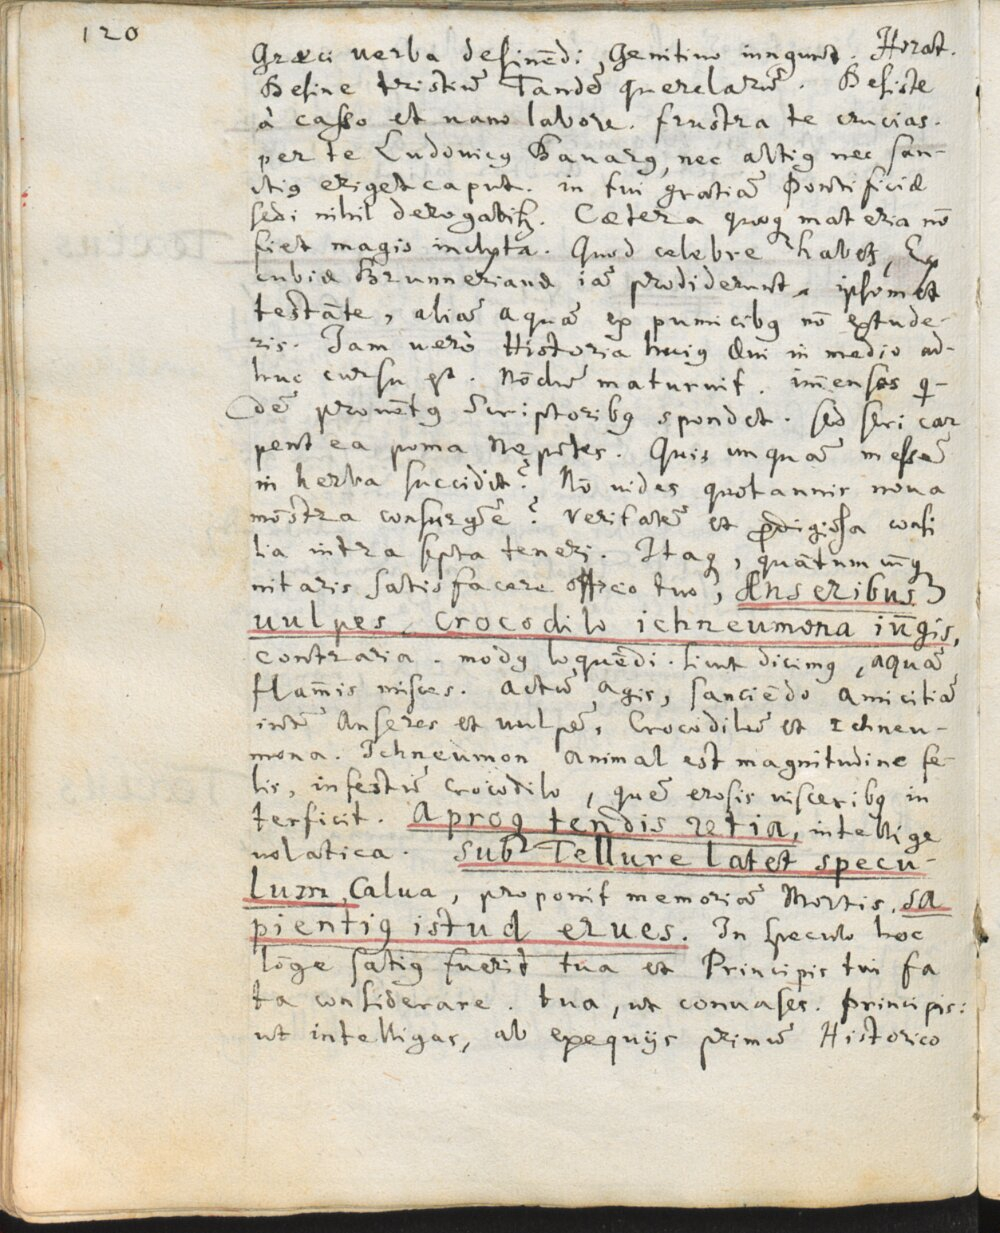 120
Græci verba desinēdi, Genitivo iungunt. Horat.
Desine tristiū Tandē querelarū. Desiste
à casso et nano labore. frustra te crucias.
per te Ludovicꝰ Bavarꝰ, nec altiꝰ nec san-
ctiꝰ eriget caput. in tui gratiā Pontificiæ
sedi nihil derogabitꝫ. Cætera quoqꝫ materia nō
fiet magis inclyta. Quod celebre habetꝫ, Ex
cubiæ Brunnerianæ iā prodiderunt, ipsomet
testāte, aliā aquā ex pumicibꝰ nō extude-
ris. Iam verò Historia huiꝰ Ævi in medio ad-
huc cursu est. Nōdū maturuit. im̄ensos q-
dē provētꝰ Scriptoribꝰ spondet. sed seri car
pent ea poma Nepotes. Quis unquā messē
in herba succidit? Nō vides quotannis nova
mōstra consurgere? veritatē et prodigiosa consi
lia intra septa teneri. Itaqꝫ, quātum un̄qꝫ
nitaris satisfacere officio tuo, Anseribus
vulpes, Crocodilo ichneumona iun̄gis,
contraria. modꝰ loquēdi. sicut dicimꝰ, aquā
flam̄is misces. actū agis, sanciēdo amicitiā
inter Anseres et vulpē, Crocodilū et Ichneu-
mona. Ichneumon animal est magnitudine fe-
lis, infestū crocodilo, quē erosis visceribꝰ in
terficit. Aproqꝫ tendis retia, intellige
volatica. sub Tellure latet specu-
lum, Calva, proponit memoriā Mortis, sa
pientiꝰ istud erues. In speculo hoc
lōge satiꝰ fuerit tua et Principis tui fa
ta considerare. tua, ut convases. Principis:
ut intelligas, ab exequijs primū Historico